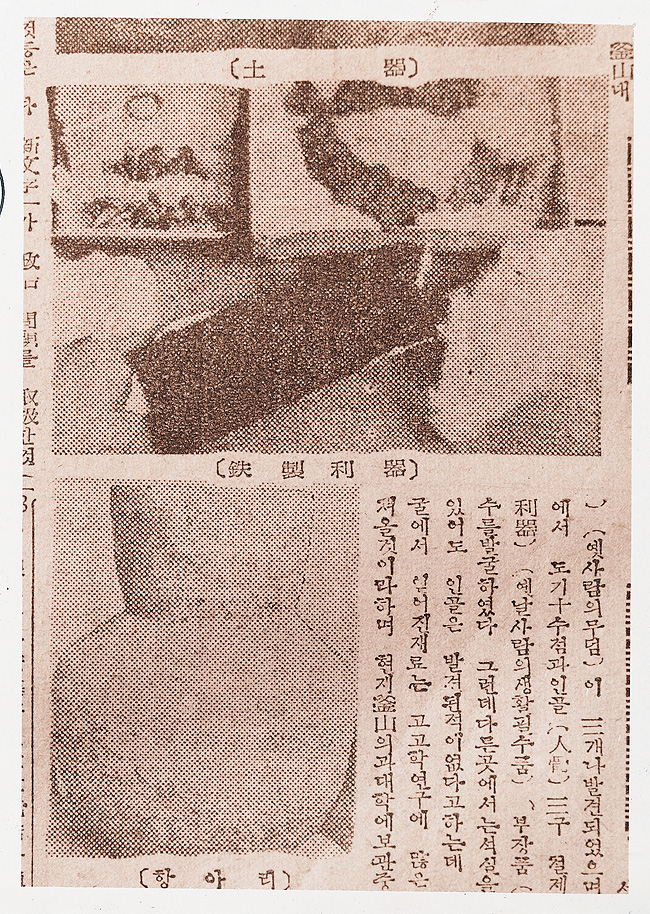 (土 器)
(鉄 製 利 器)
) (옛사람의무덤) 이 三개나발견되었으며
에서 도기十수점과인골(人骨) 三구 결제
利器) (옛날사람의생활필수품) 、부장품(
수를발굴하였다 그런데다른곳에서는석실은
있어도 인골은 발견된적이없다고하는데
굴에서 얻어진재료는 고고학연구에 많은
져올것이라하며 현재釜山의과대학에보관중
(항 아 리)
釜山내